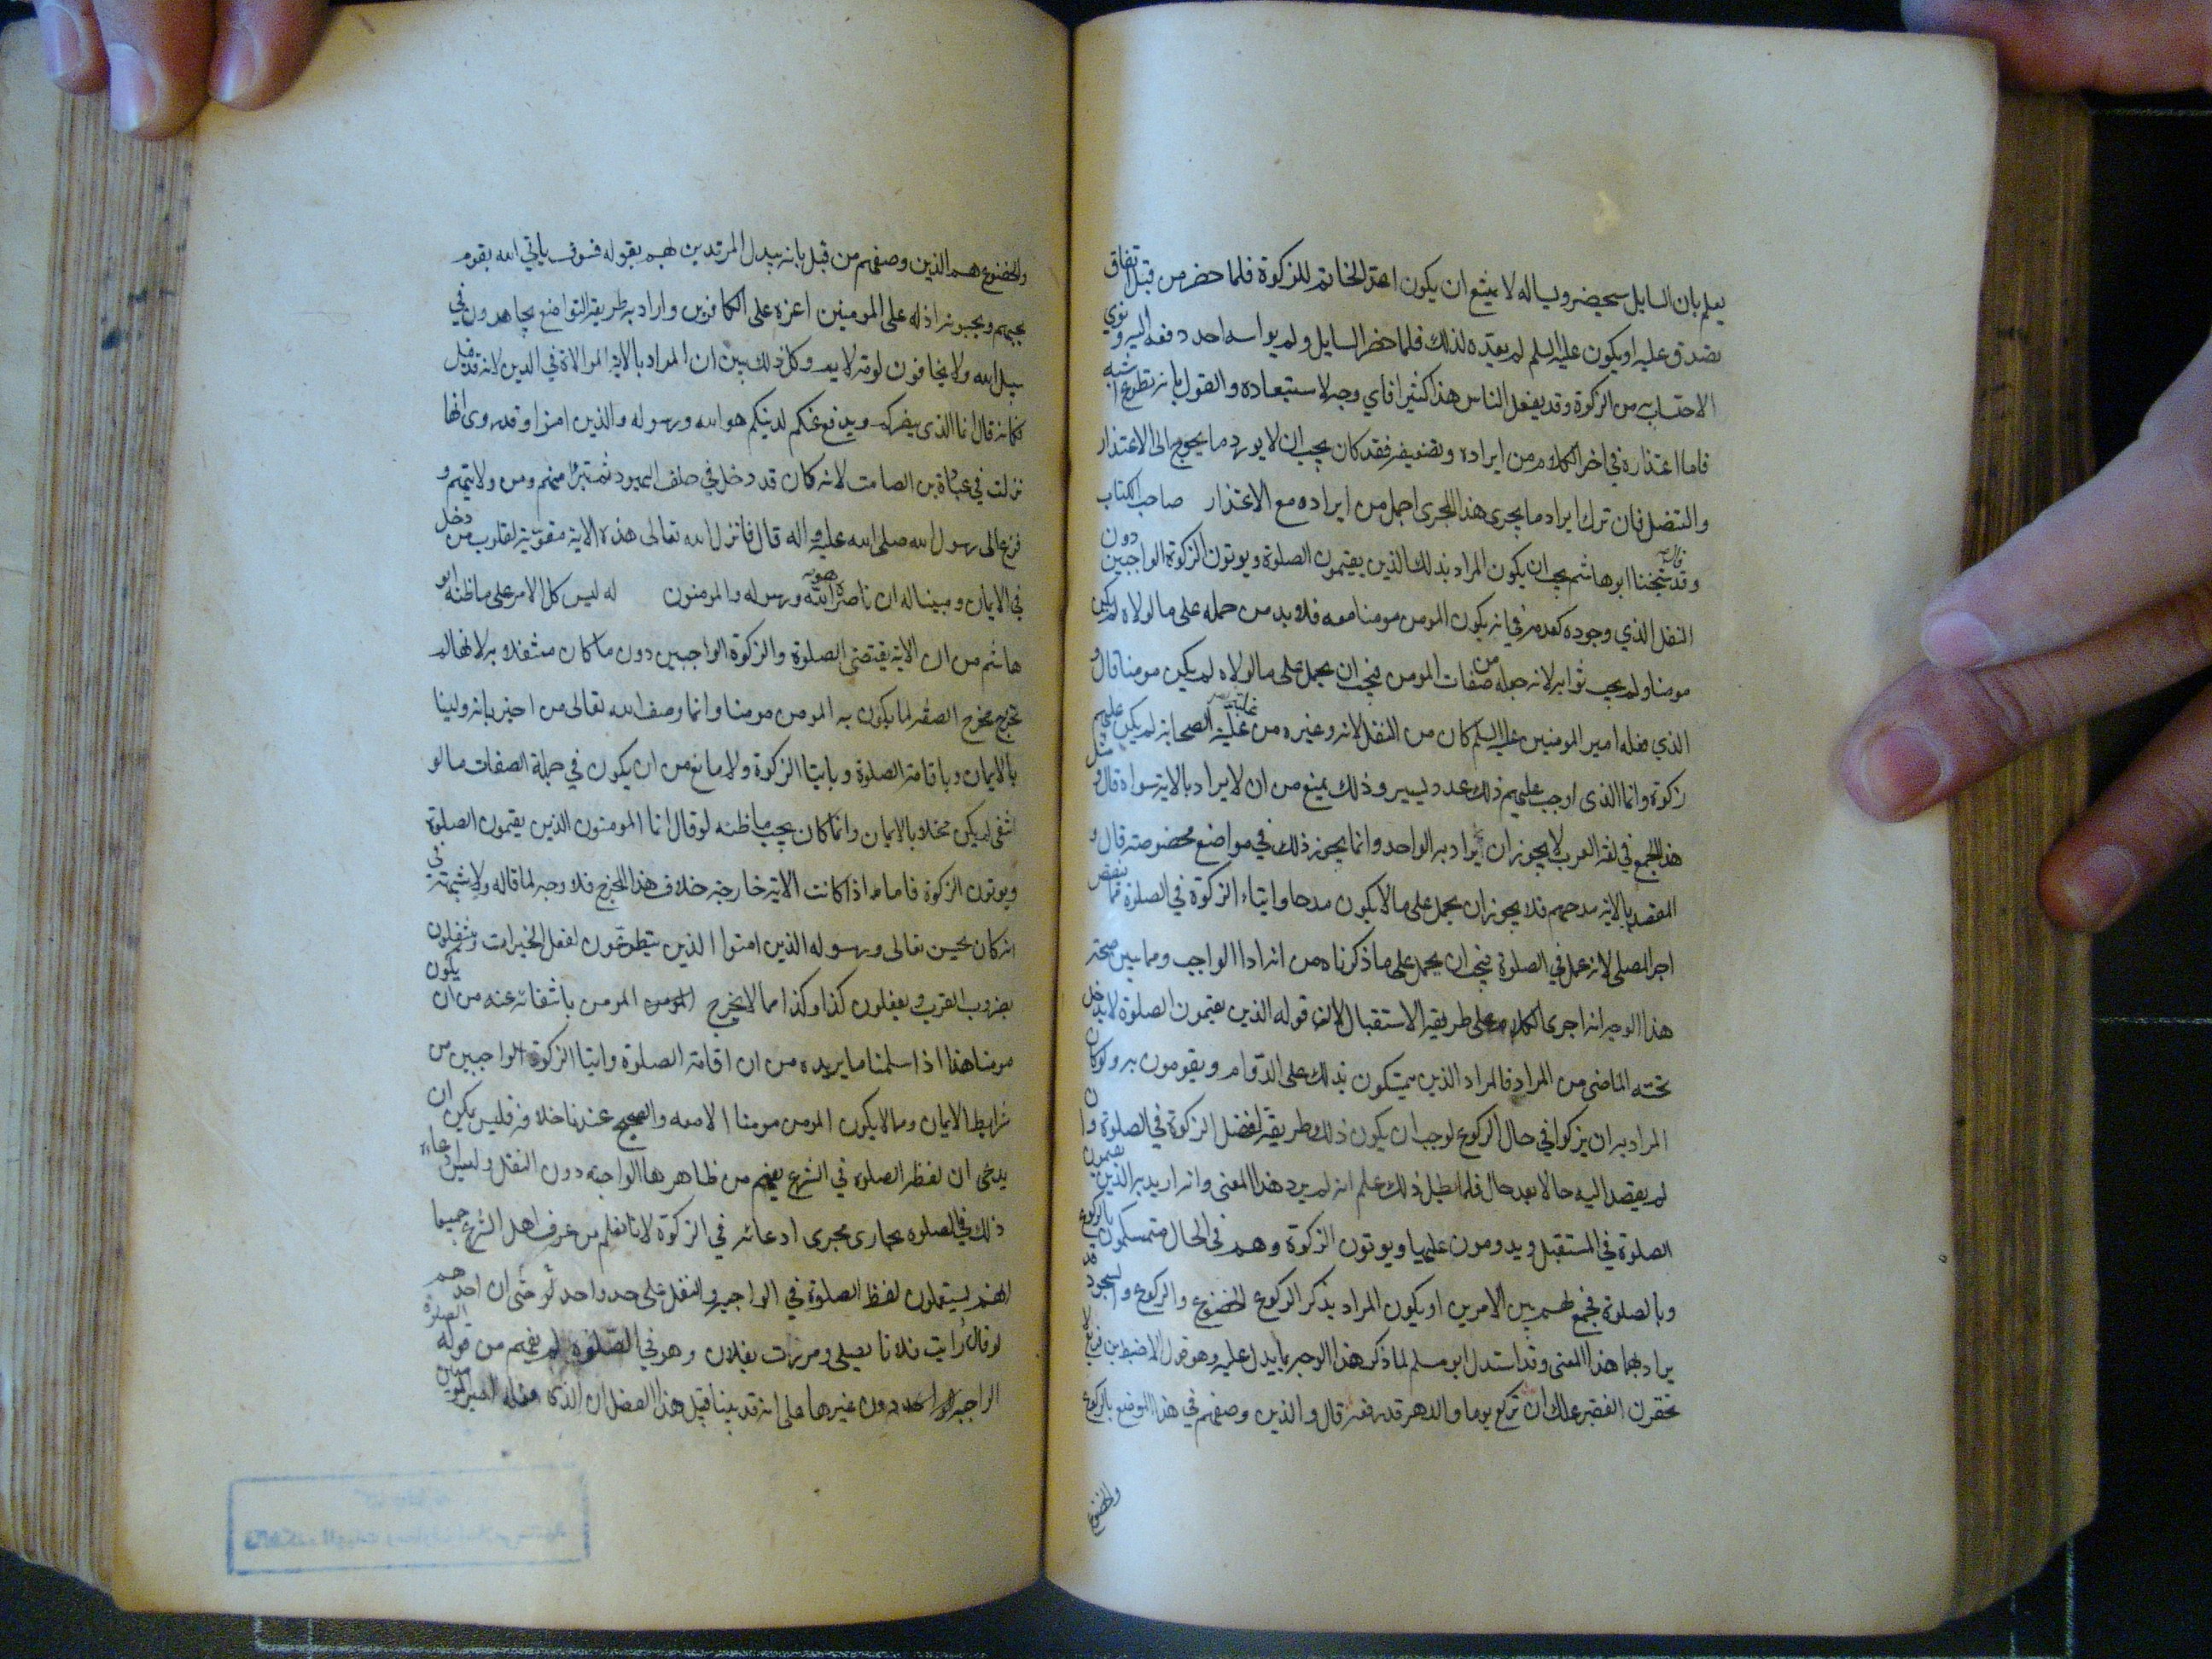 يعلم بان السايل سيحضر ويساله لا يمتنع ان يكون اعد الخاتم للزكوة فلما حضر من قبل اتفاق
تصدق عليه او يكون عليه السلم لم يعده لذلك فلما حضر السايل ولم يواسه احد دفعه اليه ونوى
الاحتساب به من الزكوة وقد يفعل الناس هذا كثيرا فاي وجه لاستبعاده والقول بانه تطوع اشبه
فاما اعتذاره في اخر الكلام من ايراده وتضعيفه فقد كان يجب ان لا يورد ما يحوج الى الاعتذار
والتنصل فان ترك ايراد ما يجرى هذا المجرى اجمل من ايراده مع الاعتذار صاحب الكتاب
وقد قال شيخنا ابو هاشم يجب ان يكون المراد بذلك الذين يقيمون الصلوة ويوتون الزكوة الواجبين دون
النفل الذي وجوده كعدمه في انه يكون المومن مومنا معه فلا بد من حمله على ما لولاه لم يكن
مومنا ولم يجب ثوابه لانه جعله من صفات المومن فيجب ان يحمل على ما لولاه لم يكن مومنا قال و
الذي فعله امير المومنين عليه السلم كان من النفل لانه وغيره من علية الصحابة لم يكن عليهم
زكوة وانما الذى اوجب عليهم ذلك عدد يسير وذلك يمنع من ان لا يراد بالاية سواه قال و مثل
هذا الجمع في لغة العرب لا يجوز ان يراد به الواحد وانما يجوز ذلك في مواضع مخصوصة قال و
المقصد بالاية مدحهم فلا يجوز ان يحمل على ما لا يكون مدحا وايتاء الزكوة في الصلوة مما ينقص
اجر المصلى لانه عمل في الصلوة فيجب ان يحمل على ما ذكرناه من انه اراد الواجب ومما يبين صحة
هذا الوجه انه اجرى الكلام على طريقة الاستقبال لان قوله الذين يقيمون الصلوة لا يدخل
تحته الماضى من المراد فالمراد الذين يتمسكون بذلك على الدوام ويقومون به ولو كان
المراد به ان يزكوا في حال الركوع لوجب ان يكون ذلك طريقة لفضل الزكوة في الصلوة وان
لم يقصد اليه حالا بعد حال فلما بطل ذلك علم انه لم يرد هذا المعنى وانه اريد به الذين يقيمون
الصلوة في المستقبل ويدومون عليها ويوتون الزكوة وهم في الحال متمسكون بالركوع
وبالصلوة فجمع لهم بين الامرين او يكون المراد بذكر الركوع الخضوع والركوع والسجود قد
يراد بهما هذا المعنى وقد استدل ابو مسلم لما ذكر هذا الوجه بما يدل عليه وهو قول الاضبط بن قريع لا
تحقرن الفقير علك ان تركع يوما والدهر قد رفعه قال والذين وصفهم في هذا الموضع بالركوع
والخضوع
والخضوع هم الذين وصفهم من قبل بانه يبدل المرتدين بهم بقوله فسوف ياتي الله بقوم
يحبهم ويحبونه اذلة على المومنين اعزه على الكافرين واراد به طريقة التواضع يجاهدون في
سبيل الله ولا يخافون لومة لايم وكل ذلك يبين ان المراد بالاية الموالاة في الدين لانه قد قيل
فكانه قال انما الذى ينصركم ويدفع عنكم لدينكم هو الله ورسوله والذين امنوا وقد روى انها
نزلت في عبادة بن الصامت لانه كان قد دخل في حلف اليهود ثم تبرأ منهم ومن ولايتهم و
فزع الى رسول الله صلى الله عليه واله قال فانزل الله تعالى هذه الاية مقوية لقلوب من دخل
في الايمان ومبينا له ان ناصره هو الله ورسوله والمومنون له ليس كل الامر على ما ظنه ابو
هاشم من ان الاية يقتضى الصلوة والزكوة الواجبين دون ما كان متنفلا به لانها لم
تخرج مخرج الصفة لما يكون به المومن مومنا وانما وصف الله تعالى من اخبر بانه ولينا
بالايمان وباقامة الصلوة وبايتا الزكوة ولا مانع من ان يكون في جملة الصفات ما لو
انتفى لم يكن مخلا بالايمان وانما كان يجب ما ظنه لو قال انما المومنون الذين يقيمون الصلوة
ويوتون الزكوة فاما اذا كانت الاية خارجة خلاف هذا المخرج فلا وجه لما قاله ولا شبهة في
انه كان يحسن تعالى ورسوله الذين امنوا الذين يتطوعون لفعل الخيرات ويتنفلون
بضروب القرب ويفعلون كذا وكذا مما لا يخرج المومن بانتفائه عنه من ان يكون
مومنا هذا اذا سلمنا ما يريده من ان اقامة الصلوة وايتا الزكوة الواجبين من
شرايط الايمان ومما لا يكون المومن مومنا الا معه والصحيح عندنا خلافه فليس يمكن ان
يدعى ان لفظ الصلوة في الشرع يفهم من ظاهرها الواجبة دون النفل وليس ادعاء
ذلك في الصلوة بجارى مجرى ادعائه في الزكوة لانا نعلم من عرف اهل الشرع جميعا
انهم يستعملون لفظ الصلوة في الواجب والنفل على حد واحد حتى ان احدهم
لو قال رايت فلانا يصلى ومررت بفلان وهو في الصلوة لم يفهم من قوله الصلوة
الواجبة دون غيرها على انه قد بينا قبل هذا الفصل ان الذى فعله امير المومنين